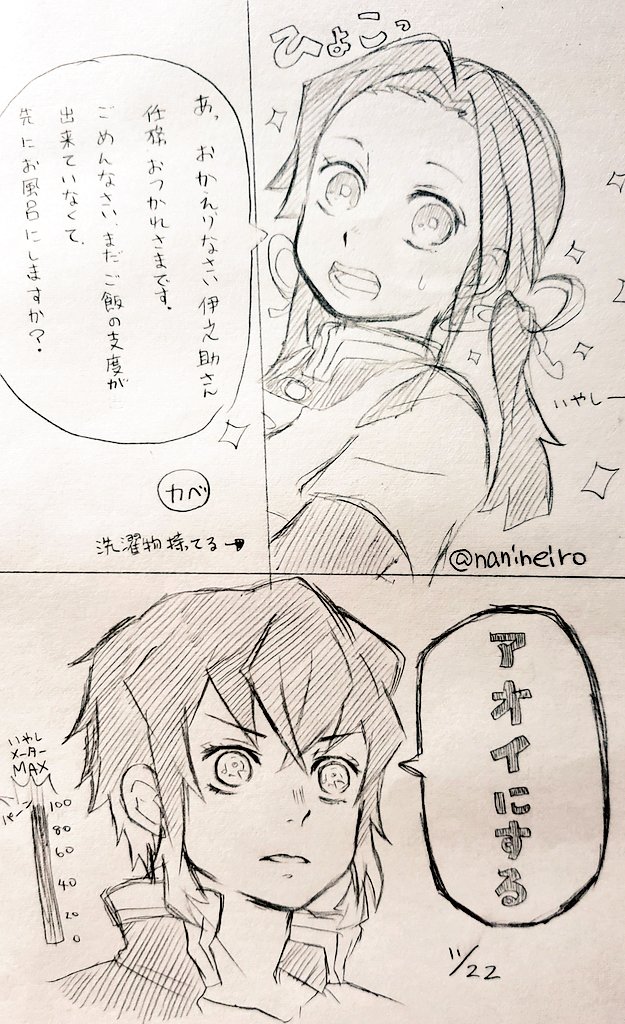 ひょこっ
あ、おかえりなさい伊之助さん
任務おつかれさまです。
ごめんなさい、まだご飯の支度が
出来ていなくて、
先にお風呂にしますか？
いやしー
カベ
洗濯物捨てる→
@nanineiro
アオイにする
いやし
メーター
MAX
パーン
100
80
60
40
20
0
11/22